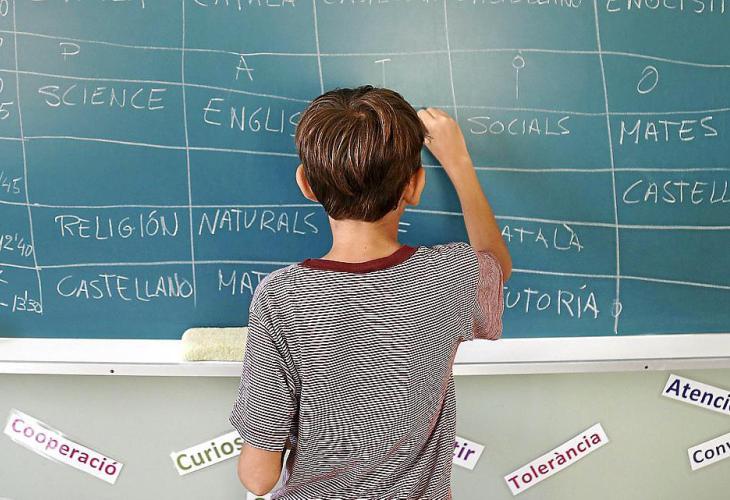 CATALÀ ESPAÑOL CASTELLANO ENGLISH
P A T I O
SCIENCE ENGLIS SOCIALS MATES
45 CASTELL
RELIGIÓN NATURALS ATALÀ
12'40
CASTELLANO MAT TUTORÍA
-13'30
Cooperació Curios tir Tolerància Atenció Conv